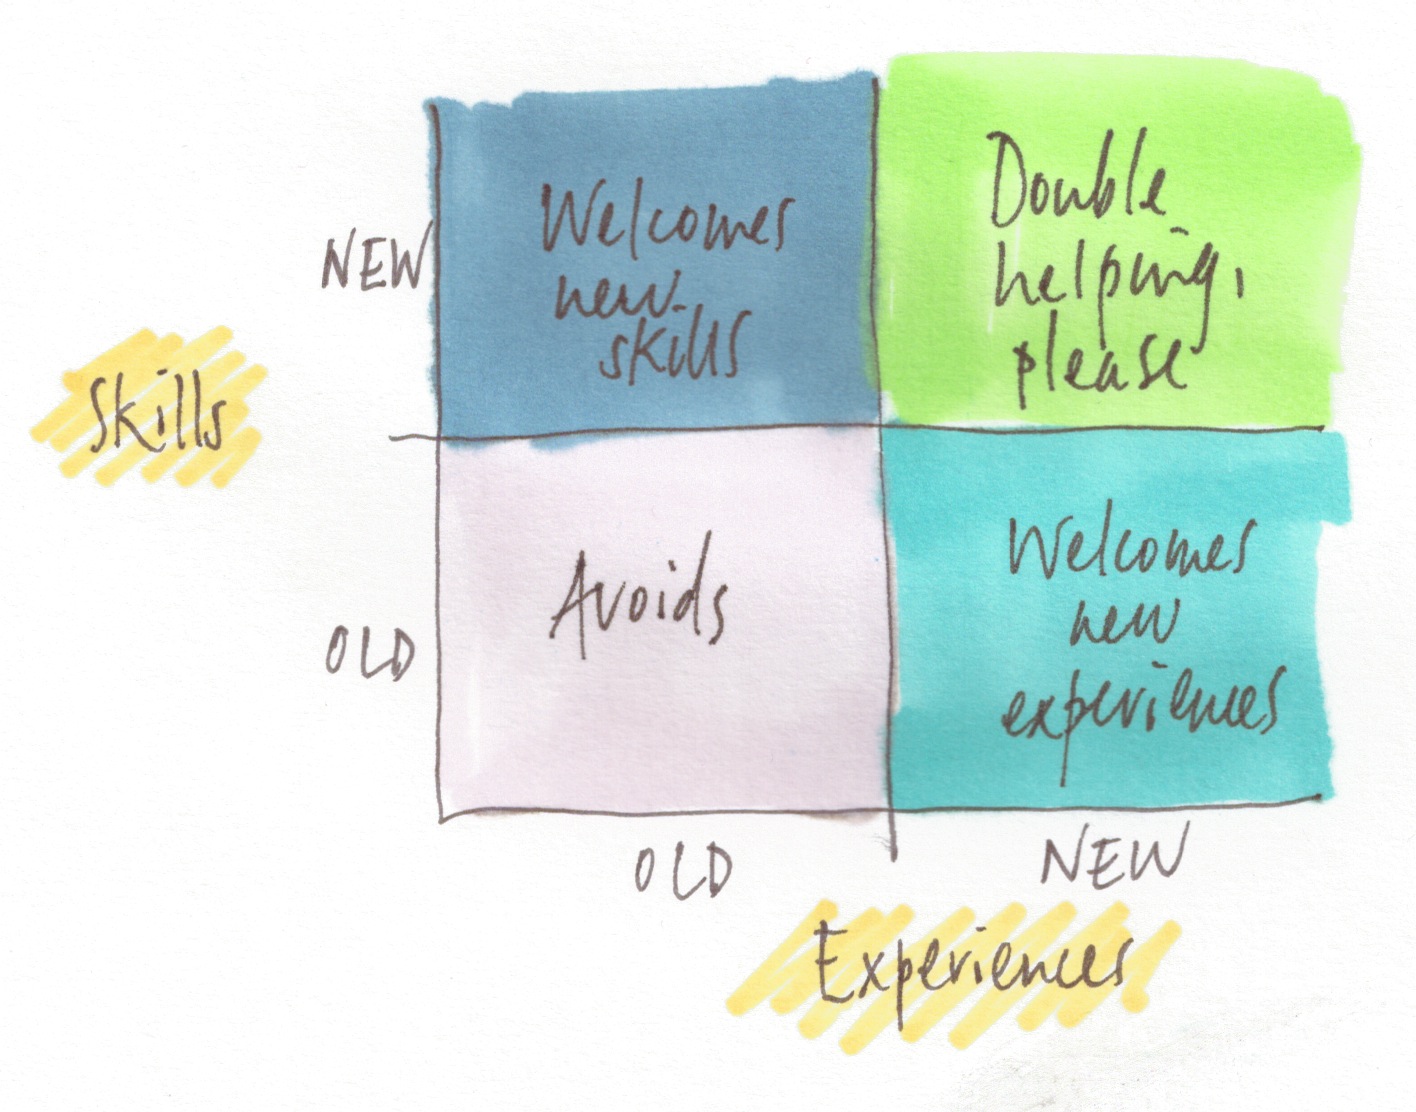 NEW
Welcomes
new
skills
Double
helping,
please
Skills
OLD
Avoids
Welcomes
new
experiences
OLD
NEW
Experiences